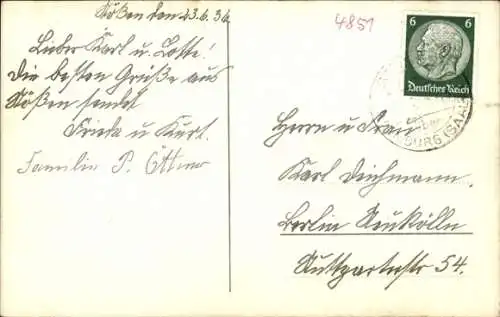 Stößen den 23.6.36
4851
Lieber Karl u. Lotte!
Die besten Grüße aus
Stößen sendet
Frieda u. Kurt.
Familie P.
6 6
Deutsches Reich
BURG (SAALE)
Herrn u Frau
Karl Dichmann
Berlin Neukölln
Stuttgarterstr 54.